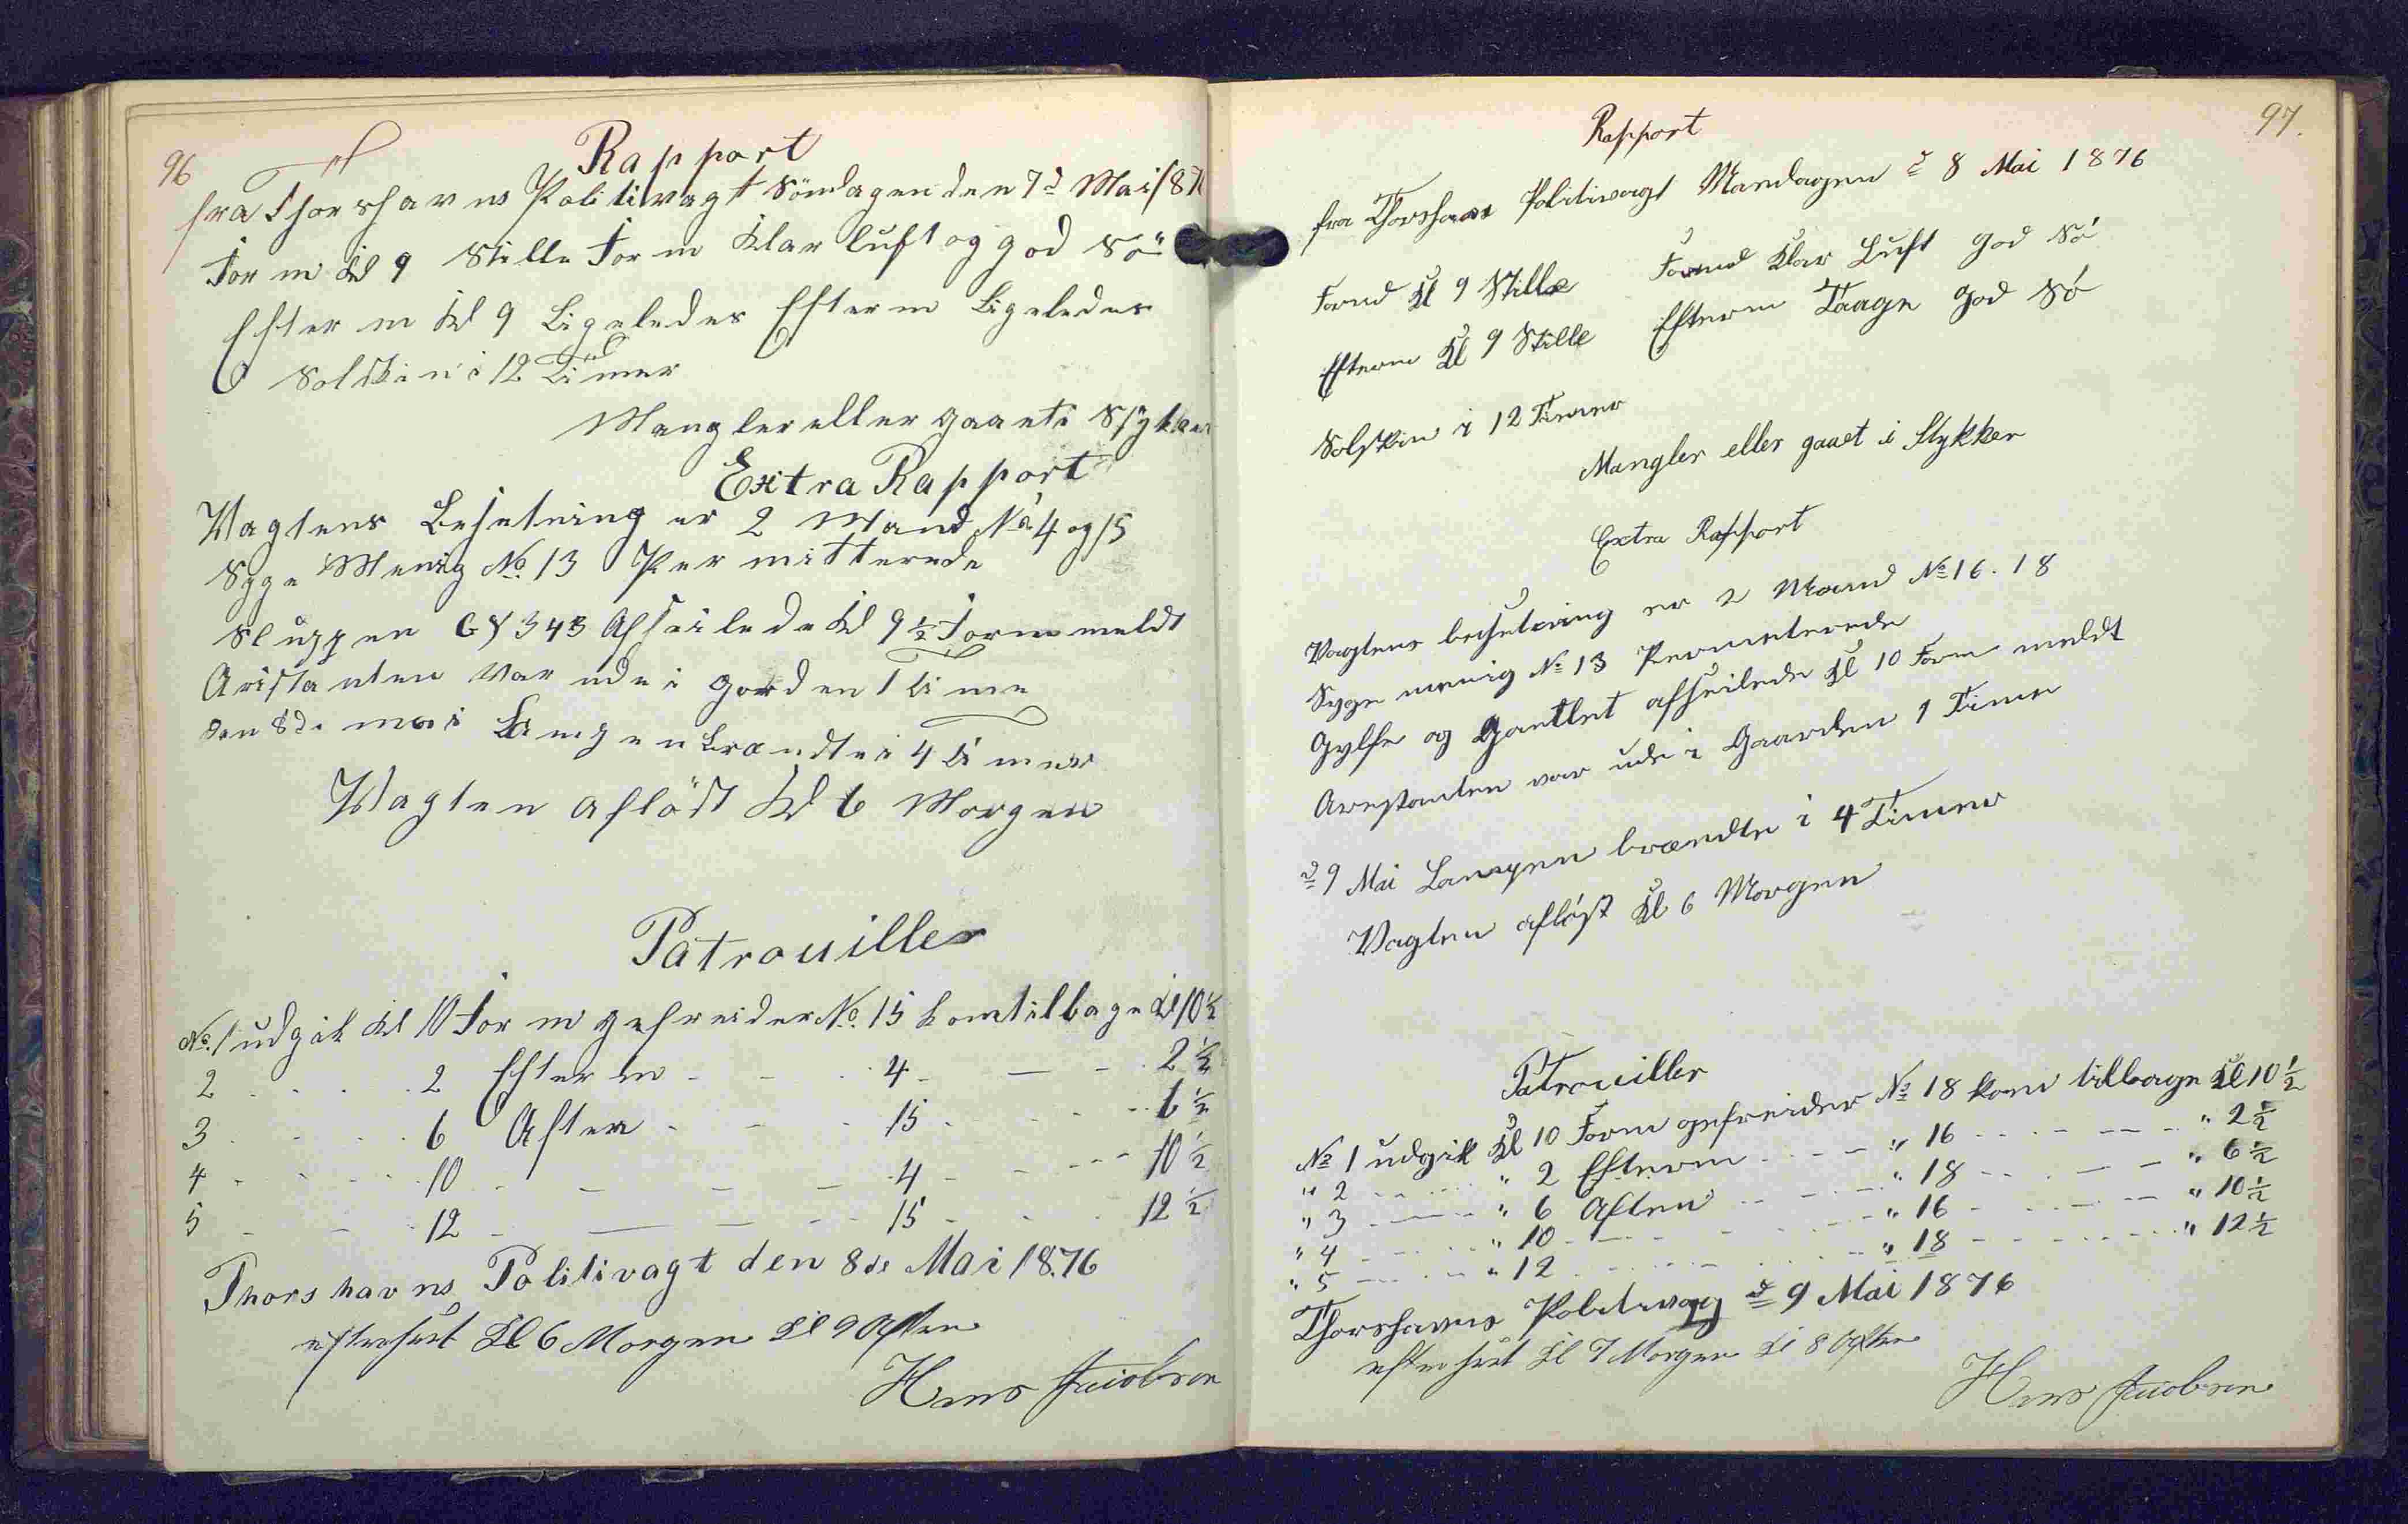 96
Rapport
fra Thorshavns Politivagt Söndagen den 7d Mai 187
Form Kl 9 Stille Form Klar luft og god Sö
Efterm Kl 9 Ligeledes Efterm Ligeledes
Solskin i 12 Timer
Mangler eller gaaet i Stykker
Extra Rapport
Vagtens Besetning er 2 Mand No 4 og 15
Syge Menig No. 13 Permitterede
Sluppen GY 343 Afseilede Kl 9½ Form meldt
Aristanten var ude i gorden 1 Time
den 8de mai Lampen Brændte i 4 Timer
Vagten aflöst Kl 6 Morgen
Patrouiller
No. 1 udgik Kl 10 Form gefreider No. 15 kom tilbage Kl 10½
2 . . . . 2 Efterm - - . 4 - — - . 2½
3 . - . . 6 Aften - - . 15 . . - . . 6½
4 - . - . . 10 . - - - . 4 - - - - 10½
5 - - . 12 - — - - . 15 - . . 12½
Thorshavns Politivagt den 8de Mai 1876
efterseet Kl 6 Morgen Kl 9 Aften
Hans Jacobsen
97.
Rapport
fra Thorshavns Politivagt Mandagen d 8 Mai 1876
Formd Kl 9 Stille Formd Klar Luft god Sö
Efterm Kl 9 Stille Efterm Taage god Sö
Solskin i 12 Timer
Mangler eller gaaet i Stykker
Extra Rapport
Vagtens besetning er 2 Mand No 16. 18
Syge menig No 13 Permeterede
Gylfe og Gauntlet afseilede Kl 10 Form meldt
Arestanten var ude i Gaarden 1 Time
d 9 Mai Lampen brændte i 4 Timer
Vagten aflöst Kl 6 Morgen
Patrouiller
No 1 udgik Kl 10 Form gefreider No 18 kom tilbage Kl 10½
" 2 - - . . . " 2 Efterm - - - - " 16 - - - - - - " 2½
" 3 - — - - " 6 Aften - - - - - " 18 - - . - - " 6½
" 4 - - . . " 10 - - - - - - " 16 - . - - - " 10½
" 5 - - - - " 12 . - . - . . - " 18 - - - - . . " 12½
Thorshavns Politivagt d 9 Mai 1876
efterseet Kl 7 Morgen Kl 8 Aften
Hans Jacobsen